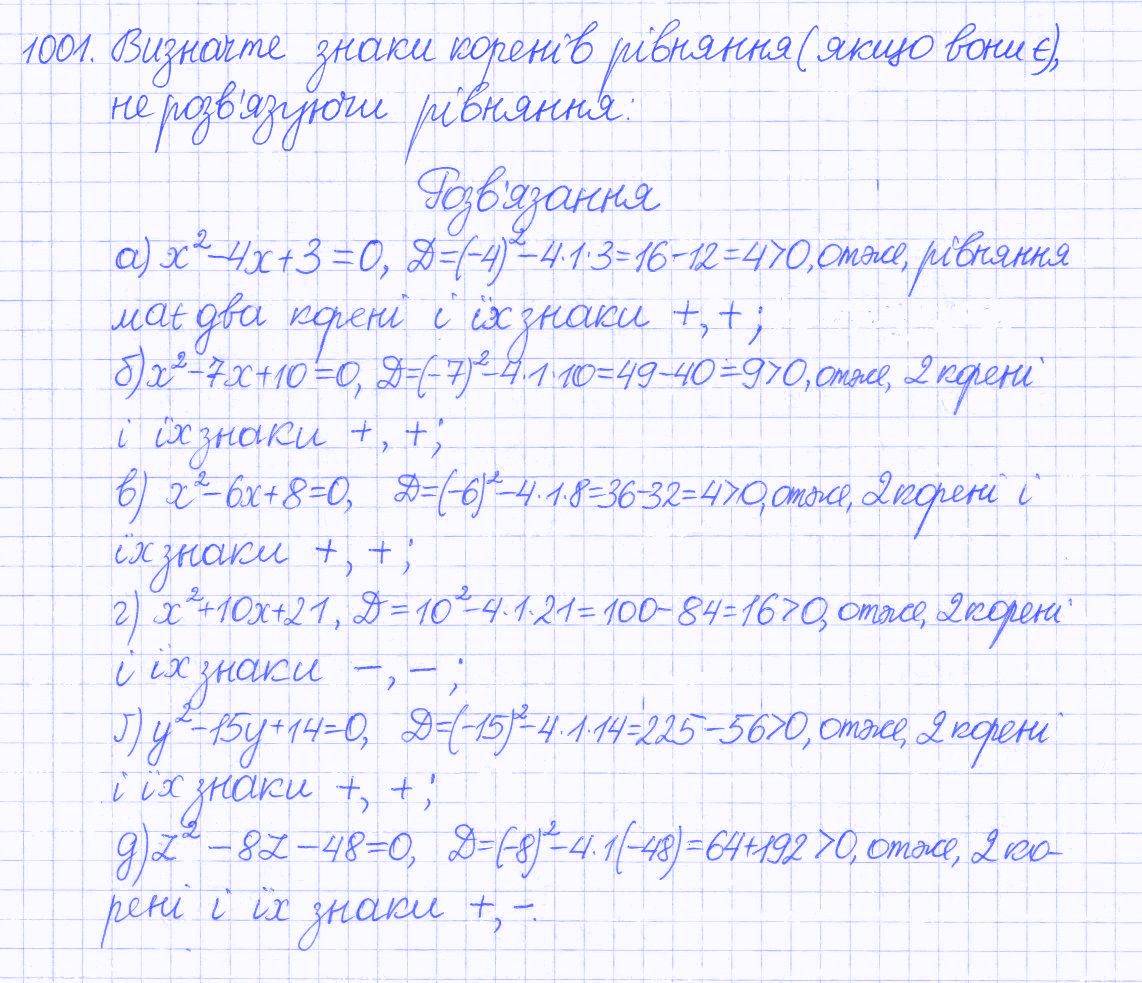 1001. Визначте знаки коренів рівняння (якщо вони є),
не розв'язуючи рівняння:
Розв'язання
а) x²-4x+3=0, D=(-4)²-4·1·3=16-12=4>0, отже, рівняння
має два корені і їх знаки +,+;
б) x²-7x+10=0, D=(-7)²-4·1·10=49-40=9>0, отже, 2 корені
і їх знаки +, +;
в) x²-6x+8=0, D=(-6)²-4·1·8=36-32=4>0, отже, 2 корені і
їх знаки +, +;
г) x²+10x+21, D=10²-4·1·21=100-84=16>0, отже, 2 корені
і їх знаки -, -;
ґ) y²-15y+14=0, D=(-15)²-4·1·14=225-56>0, отже, 2 корені
і їх знаки +, +;
д) z²-8z-48=0, D=(-8)²-4·1(-48)=64+192>0, отже, 2 ко-
рені і їх знаки +,-.